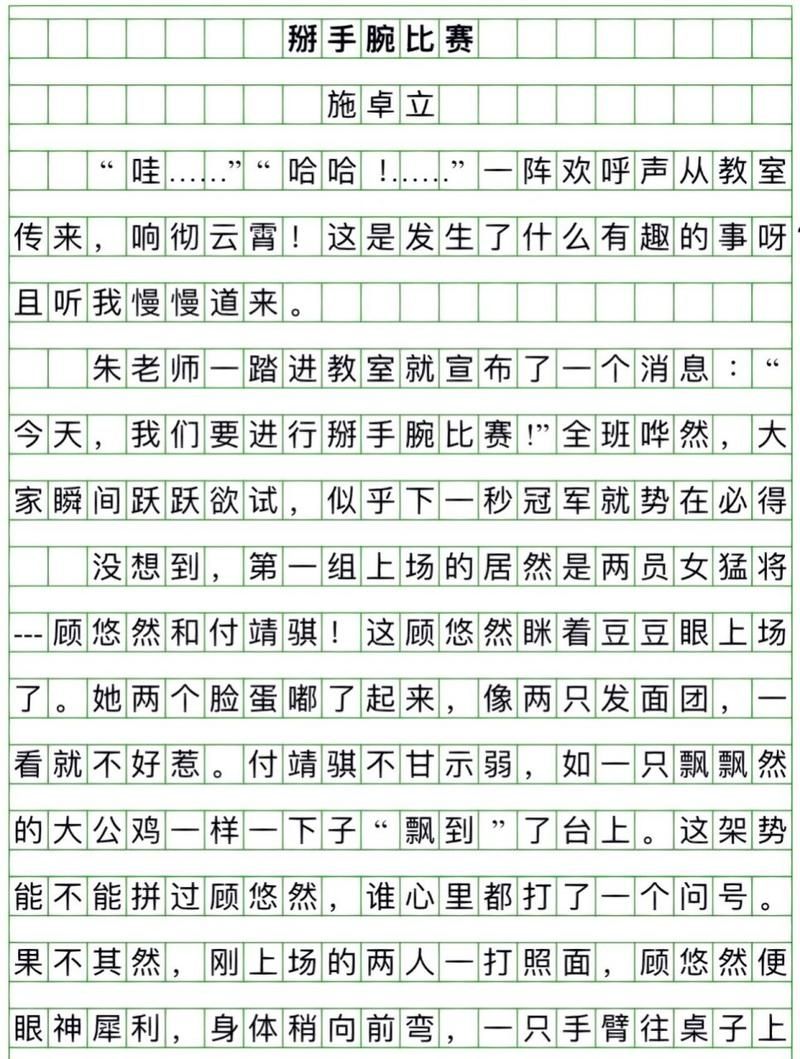 掰手腕比赛
施卓立
“哇……”“哈哈!……”一阵欢呼声从教室
传来，响彻云霄！这是发生了什么有趣的事呀
且听我慢慢道来。
朱老师一踏进教室就宣布了一个消息：“
今天，我们要进行掰手腕比赛!”全班哗然，大
家瞬间跃跃欲试，似乎下一秒冠军就势在必得
没想到，第一组上场的居然是两员女猛将
---顾悠然和付靖骐！这顾悠然眯着豆豆眼上场
了。她两个脸蛋嘟了起来，像两只发面团，一
看就不好惹。付靖骐不甘示弱，如一只飘飘然
的大公鸡一样一下子“飘到”了台上。这架势
能不能拼过顾悠然，谁心里都打了一个问号。
果不其然，刚上场的两人一打照面，顾悠然便
眼神犀利，身体稍向前弯，一只手臂往桌子上